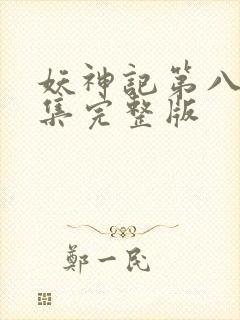 妖神記第八
集完整版
鄭一民